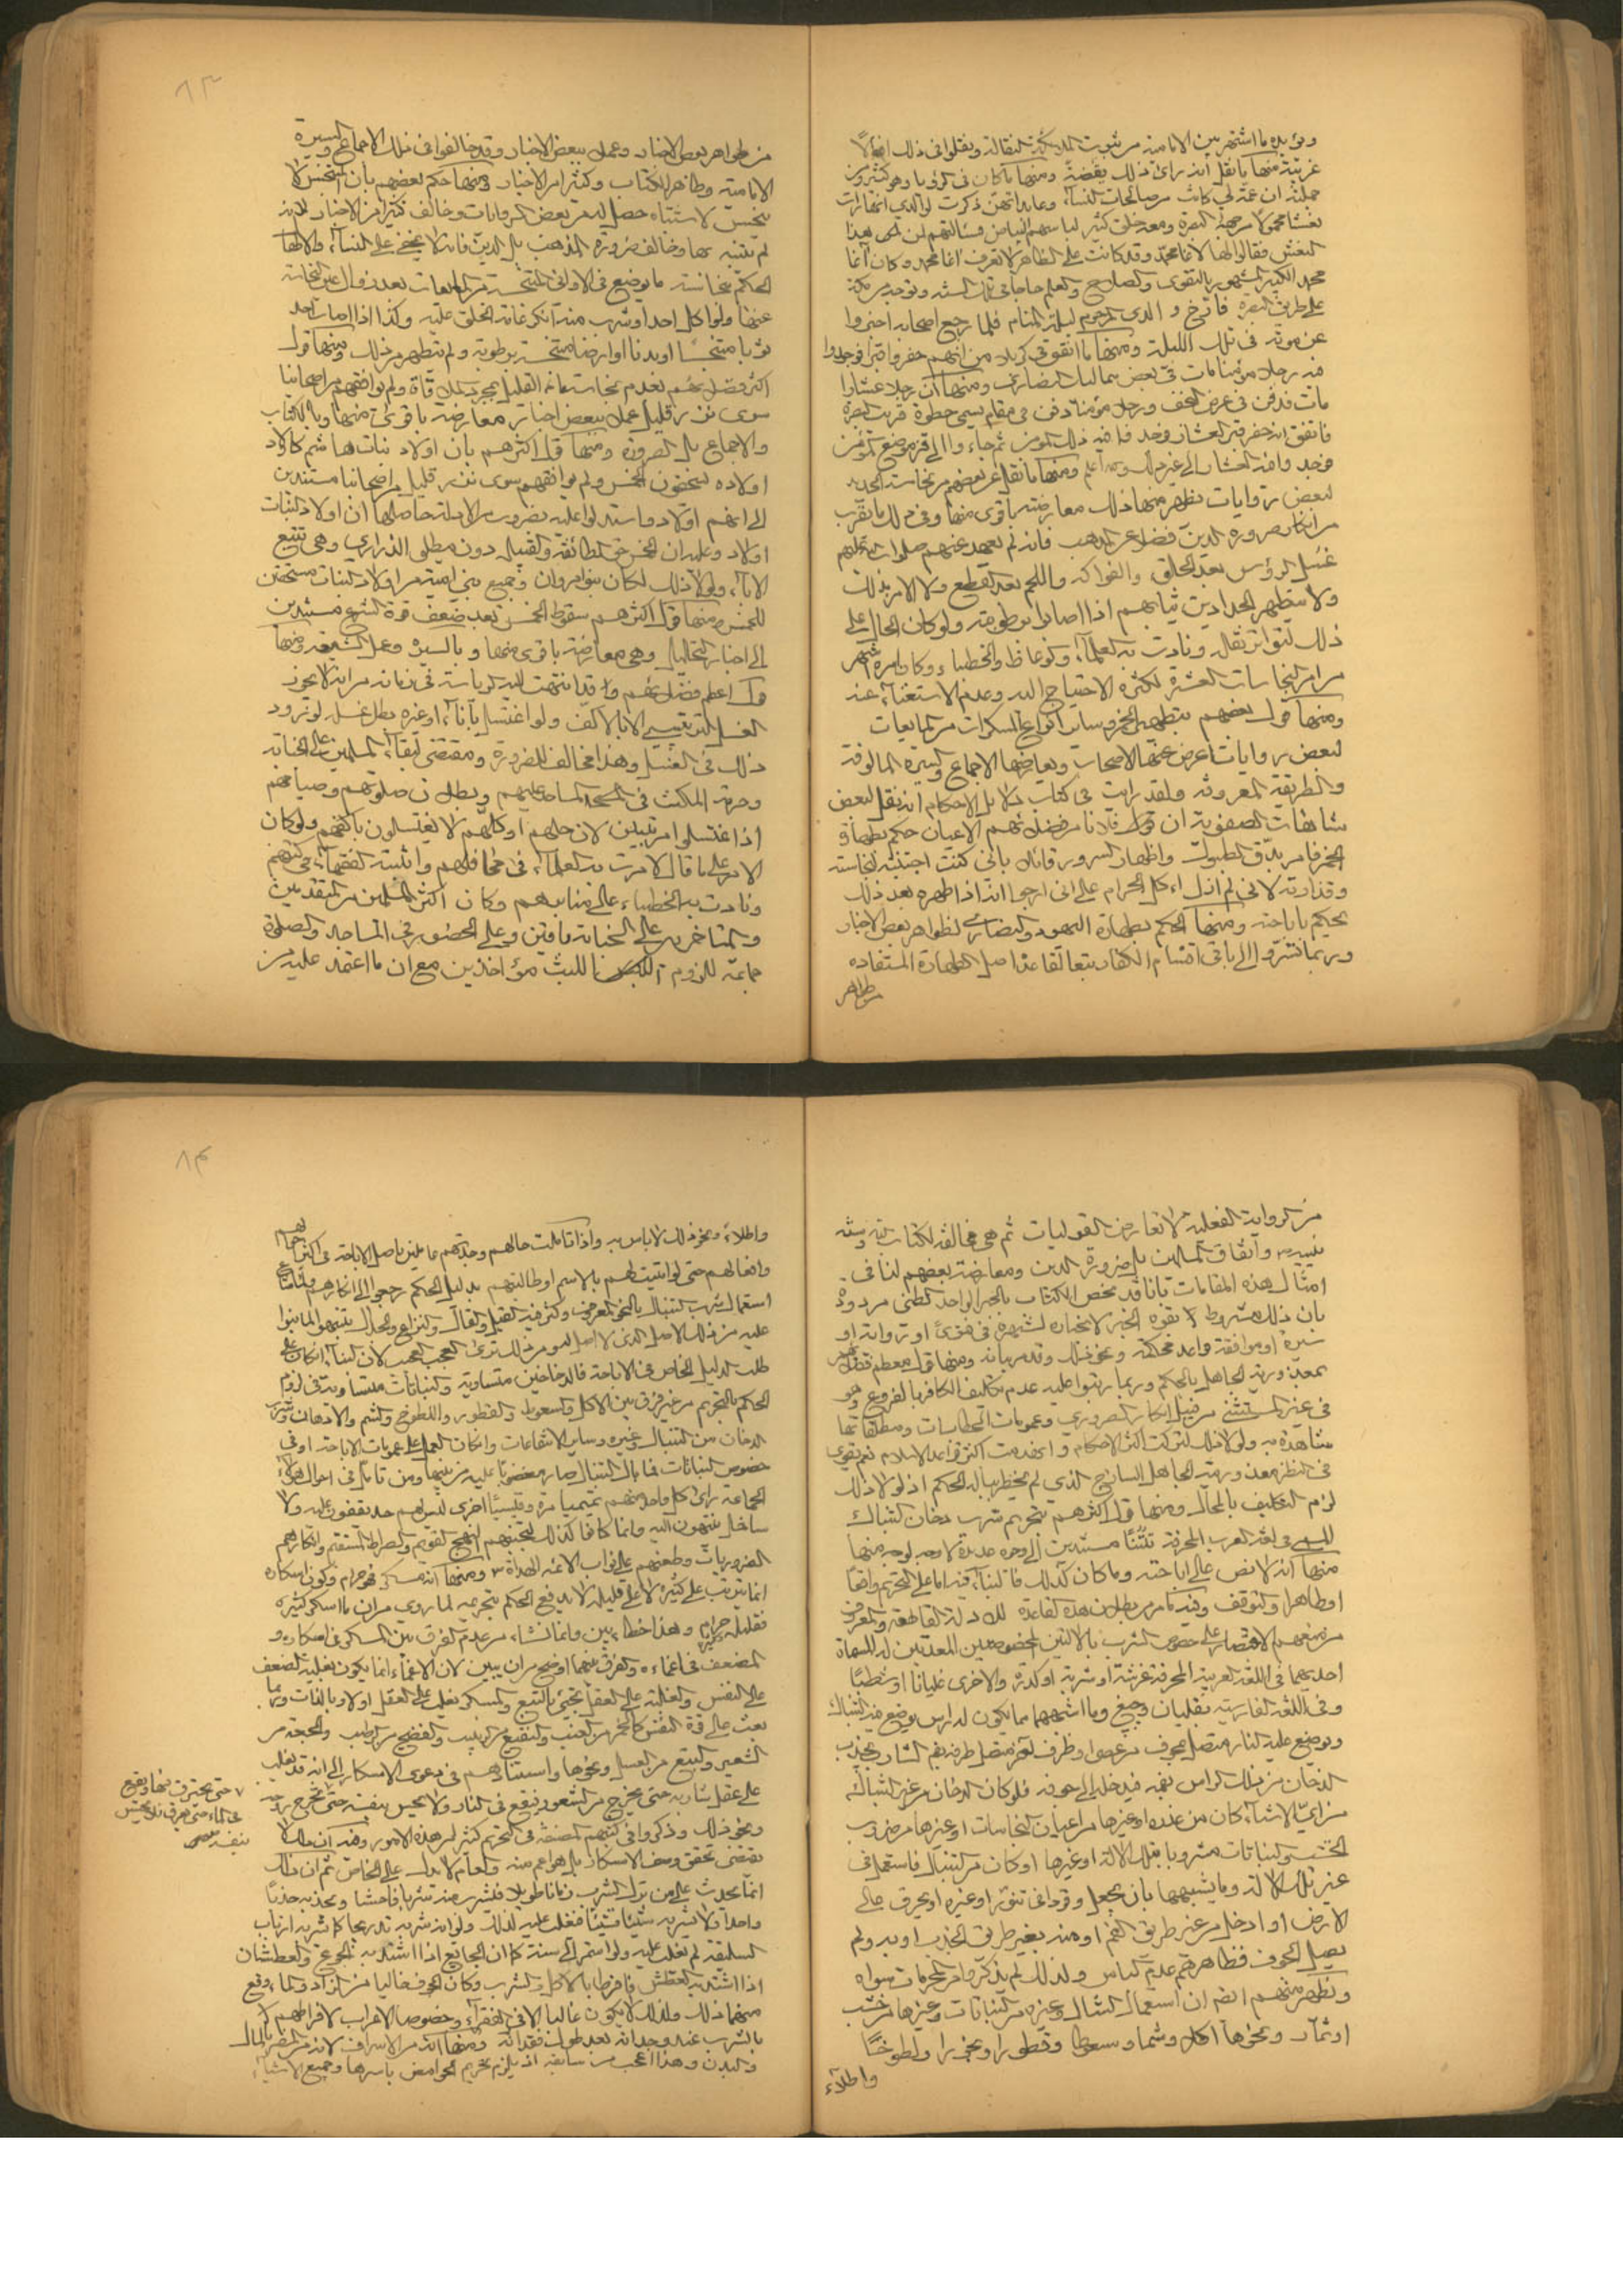 ويؤيده ما اشتهر بين الامامية من ثبوت الملائكة النقالة ونقلوا في ذلك
غريبة منها ما نقل انه رأى ذلك يقضة ومنها ما كان في الرؤيا وهو كثير ومن
جملته ان عمة لي كانت من صالحات النساء وعابداتهن ذكرت لوالدي انها رأت
نعشا محمولا من جهة البصرة ومعه خلق كثير لباسهم البياض فسألتهم لمن هذا
النعش فقالوا لها لآغا محمد وقد كانت على الظاهر لا تعرف آغا محمد وكان آغا
محمد الكبير المشهور بالتقوى والصلاح والعلم حاجا في تلك السنة وتوجه من مكة
على طريق البصرة فأرخ والدي المرحوم ليلة المنام فلما رجع اصحابه اخبروا
عن موته في تلك الليلة ومنها ما اتفق في كربلا من انهم حفروا قبرا فوجدوا
فيه رجلا مؤمنا مات في بعض ممالك النصارى ومنها ان رجلا عشارا
مات فدفن في ارض النجف ورجل مؤمنا دفن في مقام يسمى خطوة قريب البصرة
فاتفق انه حفر قبر العشار فوجد فيه ذلك المؤمن ثم جاءوا الى قبر موضع المؤمن
فوجد وافيه العشار الى غير ذلك والله اعلم ومنها ما نقل عن بعضهم من نجاسة الحديد
لبعض روايات يظهر منها ذلك معارضة باقوى منها وفي ذلك ما يقرب
من انكار ضرورة الدين فضلا عن المذهب فانه لم يعهد عنهم صلوات الله عليهم
غسل الرؤس بعد الحلق والفواكه واللحم بعد القطع ولا الامر بذلك
ولا بتطهير الحدادين ثيابهم اذا اصابوا برطوبة ولو كان الحال على
ذلك لتواتر نقله ونادت به العلماء والوعاظ والخطباء وكان امره اشهر
من امر النجاسات العشرة لكثرة الاحتياج اليه وعدم الاستغناء عنه
ومنها قول بعضهم بتطهير الخمر وسائر انواع المسكرات من المايعات
لبعض روايات اعرض عنها الاصحاب ويعارضها الاجماع والسيرة المالوفة
والطريقة المعروفة ولقد رأيت في كتاب دلائل الاحكام انه نقل لبعض
سلاطين الصفوية ان قول فلانا من فضلائهم الاعيان حكم بطهارة
الخمر فامر بدق الطبول واظهار السرور قائلا باني كنت اجتنبه لنجاسته
وقذارته لاني لم ازل اكل الحرام على اني ارجو انه اذا طهره بعد ذلك
يحكم باباحته ومنها الحكم بطهارة اليهود والنصارى لظواهر بعض الاخبار
وربما تسروا الى باقي اقسام الكفار متعلقا باصل الطهارة المستفاده
من ظواهر
٨٣
من ظواهر بعض الاخبار وعمل ببعض الاخبار وقد خالفوا في ذلك الاجماع والسيرة
الامامية وظاهر الكتاب وكثيرا من الاخبار ومنها حكم بعضهم بان المتنجس لا
ينجس لاشتباه حصل له من بعض الروايات وخالف كثيرا من الاخبار
لم يتنبه بها وخالف ضرورة المذهب بل الدين فانه لا يخفى على النساء والاطفال
الحكم بنجاسة ما يوضع في الاواني المتنجسة من المايعات بعد زوال عين النجاسة
عنها ولو اكل احد او شرب منه انكر عامة الخلق عليه وكذا اذا اصاب احد
ثوبا متنجسا او بدنا او ارضا متنجسة برطوبة ولم يتطهر من ذلك ومنها قول
اكثر فضلائهم بعدم نجاسة ماء القليل بمجرد الملاقاة ولم يوافقهم من اصحابنا
سوى نزر قليل عمل ببعض اخبار معارضة باقوى منها وبالكتاب
والاجماع بل الضرورة ومنها قول اكثرهم بان اولاد بنات هاشم كاولاد
اولاده يستحقون الخمس ولم يوافقهم سوى نزر قليل من اصحابنا مستندين
الى انهم اولاد وما استدلوا عليه بضروب من الادلة حاصلها ان اولاد البنات
اولاد وعليه ان الخمس حق الطائفة والقبيلة دون مطلق الذراري وهي تتبع
الآباء ولولا ذلك لكان بنو مروان وجميع بني امية من اولاد البنات مستحقين
للخمس ومنها قول اكثرهم بسقوط الخمس بعد ضعف قوة الشرع مستندين
الى اخبار التحليل وهي معارضة باقوى منها وبالسيرة وعمل الشيعة ومنها
قول اعظم فضلائهم وقد انتهت اليه الرياسة في زمانه من انه لا يجوز
الغسل الترتيبي الا بالاكف ولو اغتسل باناء او غيره بطل غسله لورود
ذلك في الغسل وهذا مخالف للضرورة ومقتضى لبقاء المسلمين على الجنابة
وحرمة المكث في المسجد المساجد عليهم وبطلان صلوتهم وصيامهم
اذا اغتسلوا مرتبين لان جلهم او كلهم لا يغتسلون باكفهم ولو كان
الامر على ما قال لامرت به العلماء في محافلهم واثبته الفقهاء في كتبهم
ونادت به الخطباء على منابرهم وكان اكثر المسلمين من المتقدمين
والمتأخرين على الجنابة باقين وعلى الحضور في المساجد والصلوة
جماعة للزوم اللبث مؤاخذين مع ان ما اعتمد عليه من
من الرواية الفعلية لا تعارض القوليات ثم هي مخالفة لكتاب الله وسنة
نبيه واتفاق المسلمين بل ضرورة الدين ومعارضة بعضهم لنا في
امثال هذه المقامات بانا قد نخص الكتاب بالخبر الواحد الظني مردودة
بان ذلك مشروط بقوة الخبر لانجباره لشهرة في فتوى او رواية او
سيرة او موافقة قواعد محكمة ونحو ذلك وقد مر بيانه ومنها قول معظم فضلائهم
بمعذورية الجاهل بالحكم وربما رتبوا عليه عدم تكليف الكافر بالفروع وهو
في غير المستثنى من قبيل انكار الضروري وعمومات الخطابات ومطلقاتها
شاهدة به ولولا ذلك لتركت اكثر الاحكام وانهدمت اكثر قواعد الاسلام نعم يقوى
في النظر معذورية الجاهل الساذج الذي لم يخطر بباله الحكم اذ لولا ذلك
لزم التكليف بالمحال ومنها قول اكثرهم بتحريم شرب دخان التنباك
المسمى في لغة العرب المحرفة تتنا مستندين الى وجوه عديدة لا وجه لوجه منها
منها انه لا نص على اباحته وما كان كذلك فالبناء فيه اما على التحريم واقعا
او ظاهرا والتوقف وقد تمر بطلان هذه القاعدة للادلة القاطعة والمعروف
من منعهم الاقتصار على خصوص الشرب بالآلتين المخصوصتين المعدتين له المسماة
احديهما في اللغة العربية المحرفة غرشة او شربة او كدرة والاخرى غليانا او شطبا
وفي اللغة الفارسية بقليان وچپغ وما اشبههما مما يكون له راس يوضع فيه التنباك
ويوضع عليه النار متصل بمجوف من عصا او ظرف آخر متصل طرفه بفم الشارب يجذب
الدخان من ذلك الراس بفمه فيدخله الى جوفه فلو كان الدخان من غير التنباك
من اي الاشياء كان من عذرة او غيرها من اعيان النجاسات او غيرها من ضروب
الخشب والنباتات مشروبا بتلك الآلة او غيرها او كان من التنباك فاستعمل في
غير تلك الآلة وما يشبهها بان يجعل وقودا في تنور او غيره او يحرق على
الارض او ادخل من غير طريق الفم او منه بغير طريق الجذب او به ولم
يصل الجوف فظاهرهم عدم الباس ولذلك لم يذكروا من المحرمات سواه
ويظهر منهم ايضا ان استعمال التنباك وغيره من النباتات وغيرها من خشب
او ثمار ونحوها اكلا وشما وسعوطا وقطورا وبخورا ولطوخا
واطلاء
٨٤
واطلاء ونحو ذلك لا باس به واذا تاملت حالهم وجدتهم عاملين باصل الاباحة في اكثر
وافعالهم حتى لو اتيت لهم بالاسم او طالبتهم بدليل الحكم رجعوا الى انكارهم
استعمال شرب التنباك بالنحو المعروف وكثر فيه القيل والقال والنزاع والجدال تنبهوا لما بنوا
عليه من ذلك الاصل الذي لا اصل له ومن ذلك ترى العجب العجب لان البناء ان كان على
طلب الدليل الخاص في الاباحة فالدخاخين متساوية والنباتات متساوية في لزوم
الحكم بالتحريم من غير فرق بين الاكل والسعوط والقطور واللطوخ والشم والادهان وشرب
الدخان من التنباك وغيره وساير الانتفاعات وان كان العمل على عمومات الاباحة او في
خصوص النباتات فما بال التنباك صار مغضوبا عليه من بينها ومن تامل في احوال هؤلاء
الجماعة رأى كل واحد منهم تميميا مرة وقيسيا اخرى ليس لهم حد يقفون عليه ولا
ساحل ينتهون اليه وانما كانوا كذلك لتجنبهم النهج القويم والصراط المستقيم وانكارهم
الضروريات وطعنهم على نواب الائمة الهداة ومنها انه مسكر فهو حرام وكون اسكاره
انما يترتب على كثيره لا على قليله لا يدفع الحكم بتحريمه لما روي من ان ما اسكر كثيره
فقليله حرام وهذا خطأ بين وانما نشاء من عدم الفرق بين المسكر في اسكاره و
المضعف في اغماءه والفرق بينهما اوضح من ان يبين لان الاغماء انما يكون بغلبة الضعف
على النفس والغلبة على العقل تجيئ بالتبع والمسكر يغلب على العقل اولا وبالذات وربما
بعث على قوة النفس كالخمر من العنب والنقيع من الزبيب والفضيخ من الرطب والجعة من
الشعير والبتع من العسل ونحوها واستنادهم في دعوى الاسكار الى انه قد يغلب
على عقل شاربه حتى يخرج من الشعور فيقع في النار ولا يحس بنفسه حتى تخرج روحه
حتى يحترق فيها ويقع
في الماء حتى يغرق ولا يحس
بنفسه
ونحو ذلك وذكروا في كتبهم المصنفة في التحريم كثيرا من هذه الامور وفيه ان ذلك لا
يقتضي تحقق وصف الاسكار بل هو اعم منه والعام لا يدل على الخاص ثم ان ذلك
انما يحدث على من ترك الشرب زمانا طويلا فيشرب منه شربا فاحشا ويجذبه جذبا
واحدا ولا يشربه شيئا فشيئا فغلب عليه لذلك ولو انه شربه تدريجا كما شربه ارباب
السليقة لم يغلب عليه ولو استمر الى سنة كما ان الجايع اذا اشتد به الجوع والعطشان
اذا اشتد به العطش فافرطا بالاكل والشرب وكان الجوف خاليا من الزاد والماء وقع
منهما ذلك ولذلك لا يكون غالبا الا في الفقراء وخصوصا الاعراب لافراطهم
بالشرب عند وجدانه بعد طول فقدانه ومنها انه من الاسراف لانه مضر بالمال
والبدن وهذا اعجب من سابقه اذ يلزم تحريم الحوامض باسرها وجميع الاشياء